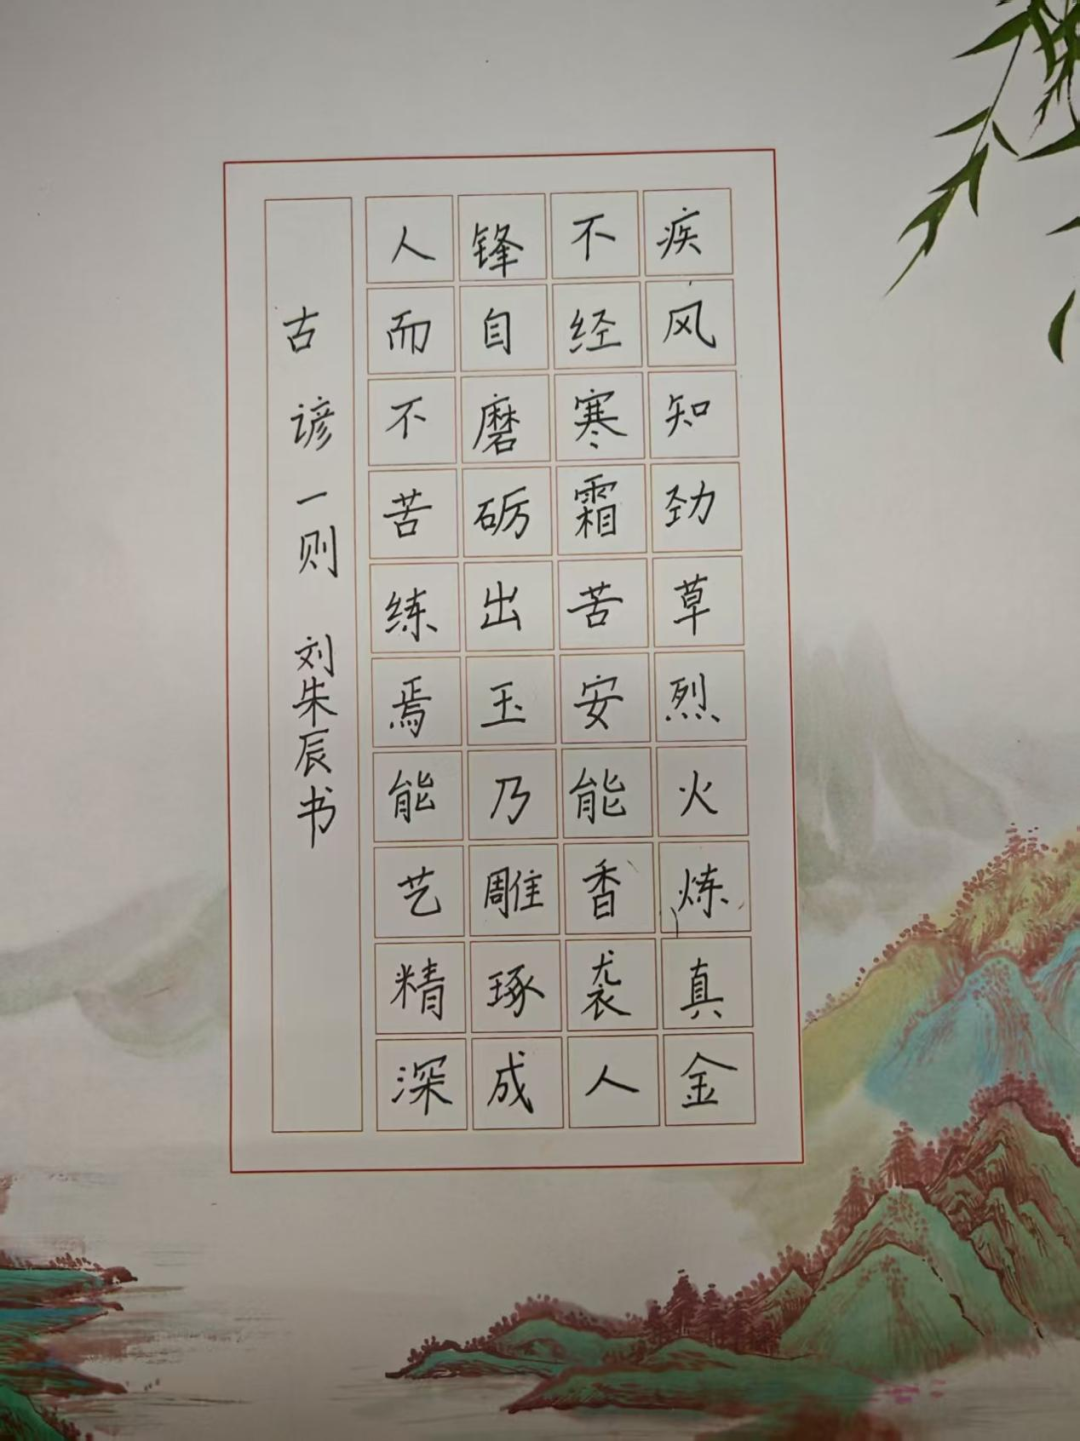 疾风知劲草烈火炼真金
不经寒霜苦安能香袭人
锋自磨砺出玉乃雕琢成
人而不苦练焉能艺精深
古谚一则 刘朱辰书